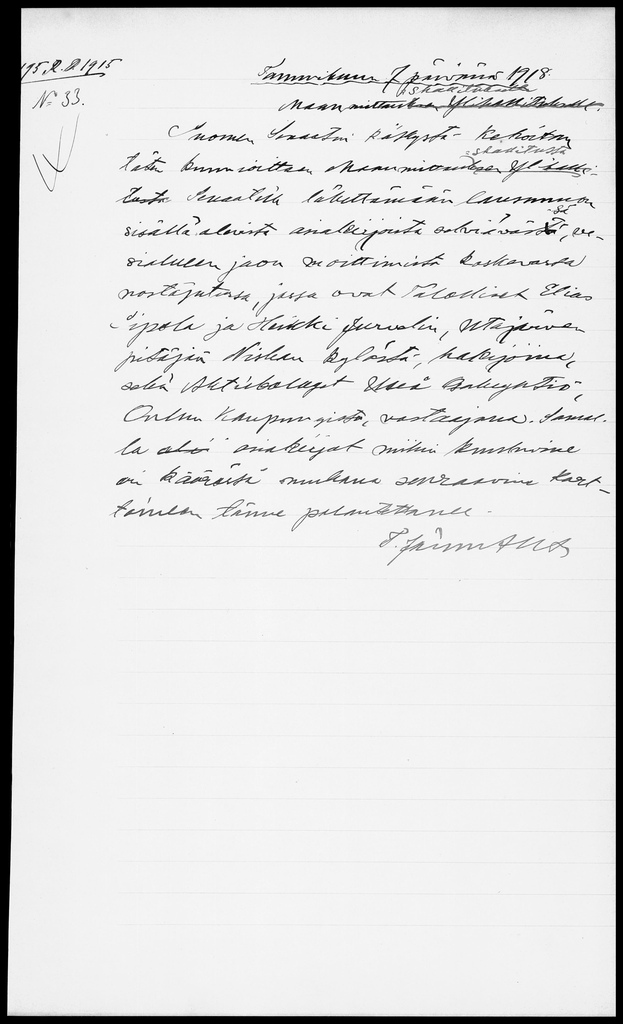 195 R.D. 1915
Nº 33.
Tammikuun 7 päivänä 1918.
shallitukselle
Maanmittauksen Ylihallitukselle.
Suomen Senaatin käskystä kehoitan
shallitusta
täten kunnioittaen Maanmittauksen Ylihalli-
tusta Senaatille lähettämään lausunnon
sä
sisällä olevista asiakirjoista selviävästä, ve-
sialueen jaon moittimista koskevassa
nostajutussa, jossa ovat Talolliset Elias
Sipola ja Heikki Jurvelin, Utajärven
pitäjän Niskan kylästä, hakijoina,
sekä Aktiebolaget Uleå Osakeyhtiö,
Oulun Kaupungista, vastaajana. Samal-
la asiakirjat mihin kuuluvine
on kääröstä mukana seuraavine kart-
toineen tänne palautettanee.